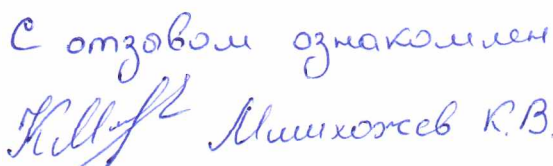 С отзывом ознакомлен
Мишхожев К.В.